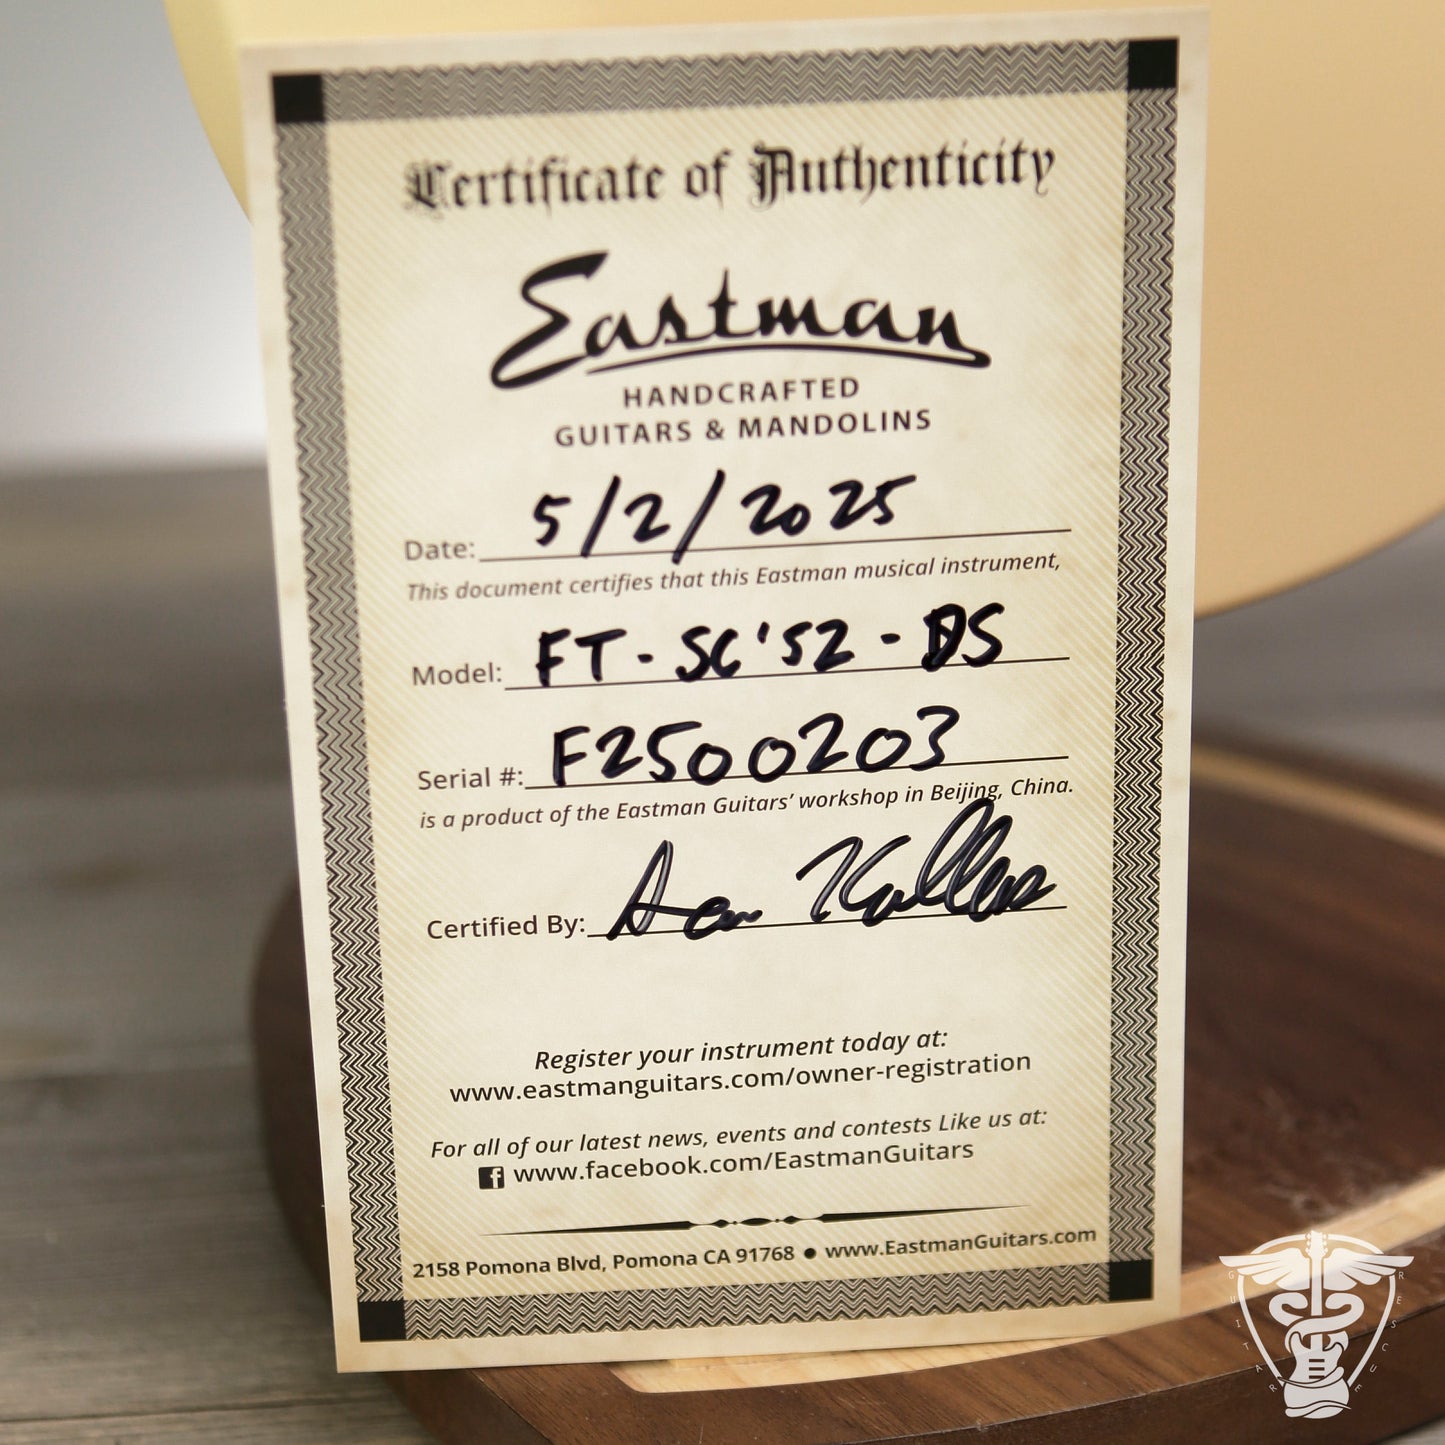 Certificate of Authenticity
Eastman
HANDCRAFTED
GUITARS & MANDOLINS
Date: 5/2/2025
This document certifies that this Eastman musical instrument,
Model: FT-SC'52-DS
Serial #: F2500203
is a product of the Eastman Guitars' workshop in Beijing, China.
Certified By:
Register your instrument today at:
www.eastmanguitars.com/owner-registration
For all of our latest news, events and contests Like us at:
f www.facebook.com/EastmanGuitars
2158 Pomona Blvd, Pomona CA 91768 ● www.EastmanGuitars.com
GUITAR RESCUE